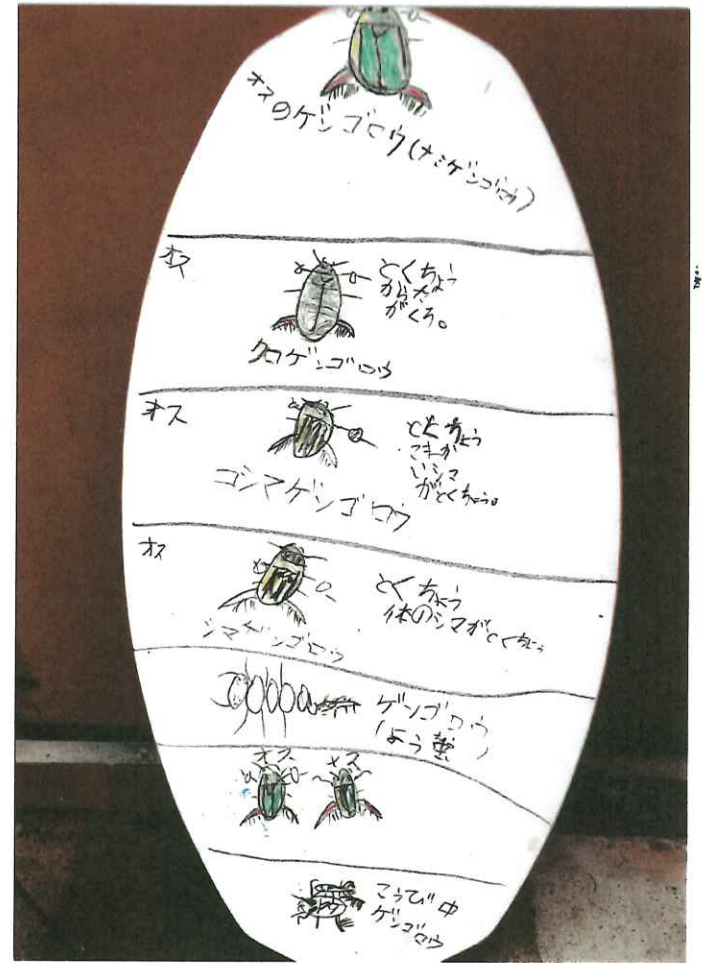 オスのゲンゴロウ(ナミゲンゴロウ)
オス
とくちょう
から大
がくろ。
クロゲンゴロウ
オス
とくちょう
こまか
いシマ
がとくちょう。
コシマゲンゴロウ
オス
とくちょう
体のシマがとくちょう
シマゲンゴロウ
ゲンゴロウ
(よう蛍)
オス メス
こうび中
ゲンゴロウ